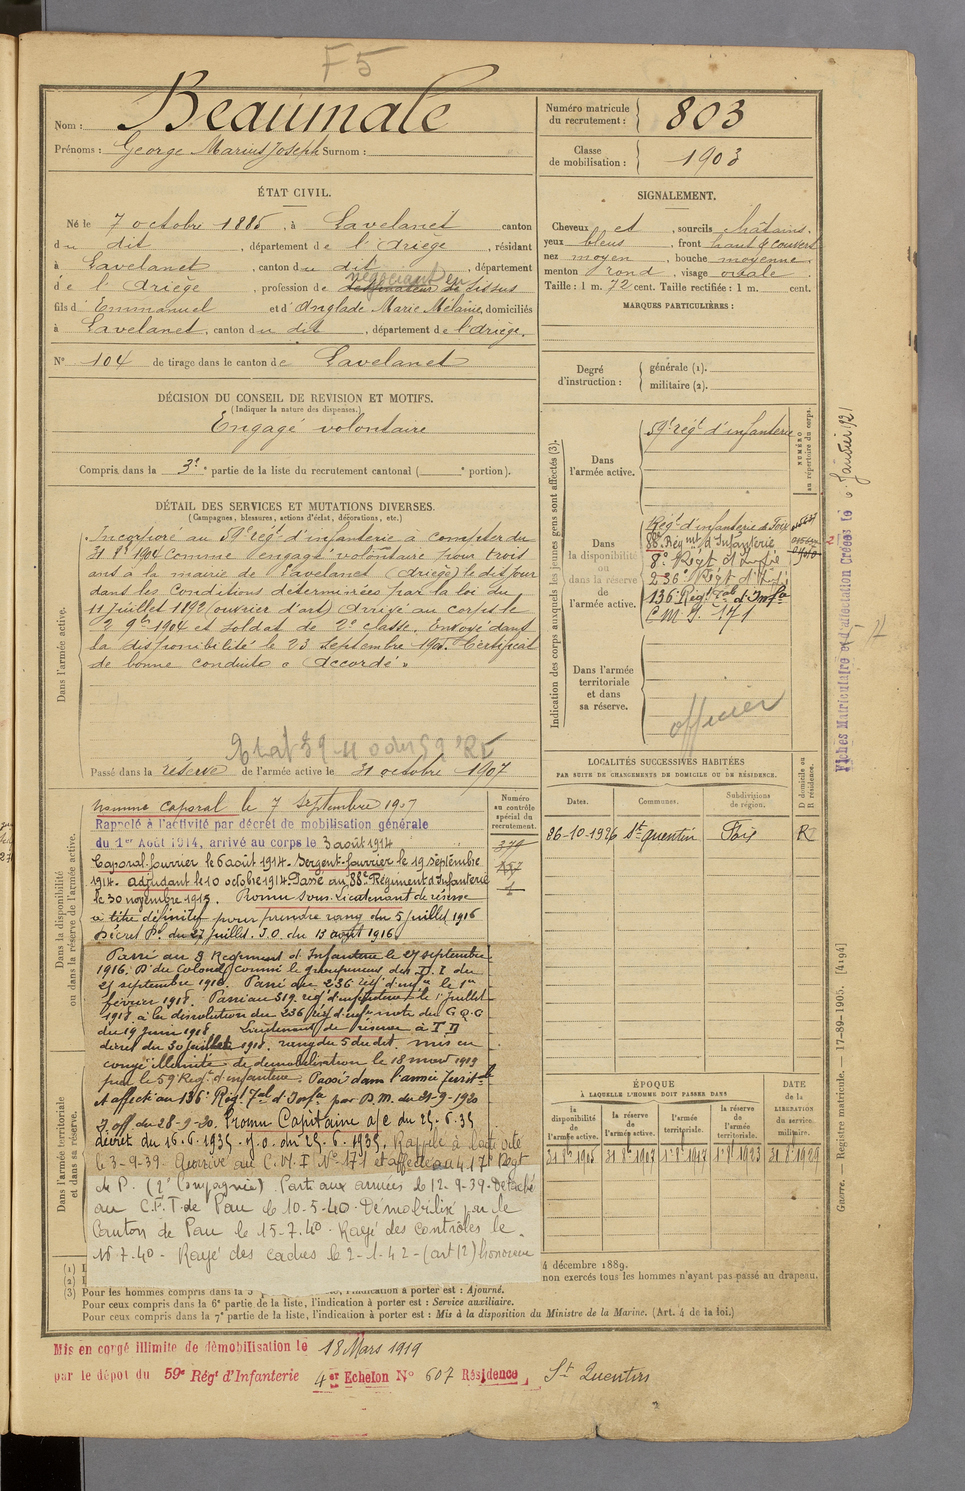 F5
Nom : Beaumale
Prénoms : George Marius Joseph Surnom :
Numéro matricule du recrutement : 803
Classe de mobilisation : 1903
ÉTAT CIVIL.
Né le 7 octobre 1885, à Lavelanet canton
du dit, département de l'Ariège, résidant
à Lavelanet, canton du dit, département
de l'Ariège, profession de négociant en tissus
fils d'Emmanuel et d'Anglade Marie Mélanie, domiciliés
à Lavelanet, canton du dit, département de l'Ariège.
N° 104 de tirage dans le canton de Lavelanet
SIGNALEMENT.
Cheveux et, sourcils châtains,
yeux bleus, front haut & couvert
nez moyen, bouche moyenne
menton rond, visage ovale
Taille : 1 m. 72 cent. Taille rectifiée : 1 m. cent.
MARQUES PARTICULIÈRES :
Degré d'instruction : générale (1).
militaire (2).
DÉCISION DU CONSEIL DE REVISION ET MOTIFS.
(Indiquer la nature des dispenses.)
Engagé volontaire
Compris dans la 3e partie de la liste du recrutement cantonal ( e portion).
DÉTAIL DES SERVICES ET MUTATIONS DIVERSES.
(Campagnes, blessures, actions d'éclat, décorations, etc.)
Dans l'armée active.
Incorporé au 59e régt d'infanterie à compter du
31 8bre 1904 comme engagé volontaire pour trois
ans à la mairie de Lavelanet (Ariège) le dit jour
dans les conditions déterminées par la loi du
11 juillet 1892 (ouvrier d'art) Arrivé au corps le
2 9bre 1904 et soldat de 2e classe. Envoyé dans
la disponibilité le 23 septembre 1905. Certificat
de bonne conduite "Accordé"
Passé dans la réserve de l'armée active le 31 octobre 1907
Dans la disponibilité ou dans la réserve de l'armée active.
Nommé caporal le 7 septembre 1907
Rappelé à l'activité par décret de mobilisation générale
du 1er Août 1914, arrivé au corps le 3 août 1914
Caporal-fourrier le 6 août 1914. Sergent-fourrier le 19 septembre
1914. Adjudant le 10 octobre 1914. Passé au 88e Régiment d'Infanterie
le 30 novembre 1915. Promu sous-lieutenant de réserve
à titre définitif pour prendre rang du 5 juillet 1916
Décret Pl. du 27 juillet. J.O. du 13 août 1916
Passé au 8 Régiment d'Infanterie le 27 septembre
1916. D. du Colonel commt le groupement des D.I du
25 septembre 1916. Passé au 236 régt d'infie le 1er
février 1918. Passé au 319 régt d'infanterie le 1er juillet
1918 à la dissolution du 236 régt d'infie note du G.Q.G
du 19 juin 1918 Lieutenant de réserve à T.D
décret du 30 juillet 1918. rang du 5 du dit mis en
congé illimité de démobilisation le 18 mars 1919
par le 59 Regt d'infanterie. Passé dans l'armée Territle
et affecté au 136e Régt Tal d'Infie par D.M. du 21-9-1920
J. off du 28-9-20. Promu Capitaine a/c du 25.6.35
décret du 16.6.1935. J.O. du 25.6.1935. Rappelé à l'activité
le 3-9-39. Arrivé au C.M.I N° 171 et affecté au 417e Régt
de P. (2e Compagnie). Parti aux armées le 12-9-39. Détaché
au C.F.T. de Pau le 10-5-40. Démobilisé par le
Canton de Pau le 15-7-40. Rayé des contrôles le
16-7-40 - Rayé des cadres le 2-1-42 - (art 12) honoraire
Dans l'armée territoriale et dans sa réserve.
Numéro au contrôle spécial du recrutement.
Indication des corps auxquels les jeunes gens sont affectés (3).
NUMÉRO au répertoire du corps.
Dans l'armée active.
59e régt d'infanterie
Dans la disponibilité ou dans la réserve de l'armée active.
Régt d'infanterie de Foix
88e Régimt d'Infanterie
8e Régt d'Infie
236e Régt d'Infie
136 Régt Tal d'Infie
C.M.I. 171
Dans l'armée territoriale et dans sa réserve.
officier
LOCALITÉS SUCCESSIVES HABITÉES
PAR SUITE DE CHANGEMENTS DE DOMICILE OU DE RÉSIDENCE.
D domicile ou R résidence.
Dates. Communes. Subdivisions de région.
26-10-1926 St quentin Foix R
ÉPOQUE
À LAQUELLE L'HOMME DOIT PASSER DANS
DATE DE LA LIBÉRATION du service militaire.
la disponibilité de l'armée active. la réserve de l'armée active. l'armée territoriale. la réserve de l'armée territoriale.
31 8bre 1905 31 8bre 1907 1er 8bre 1917 1er 8bre 1923 31 8bre 1929
4 décembre 1889.
non exercés tous les hommes n'ayant pas passé au drapeau.
(1)
(2)
(3) Pour les hommes compris dans la l'indication à porter est : Ajourné.
Pour ceux compris dans la 6e partie de la liste, l'indication à porter est : Service auxiliaire.
Pour ceux compris dans la 7e partie de la liste, l'indication à porter est : Mis à la disposition du Ministre de la Marine. (Art. 4 de la loi.)
Mis en congé illimité de démobilisation le 18 Mars 1919
par le dépôt du 59e Régt d'Infanterie 4er Echelon N° 607 Résidence St Quentin
Fiches Matriculaire et d'affectation Créées le Janvier 1921
Guerre. — Registre matricule. — 17-89-1905. [4194]